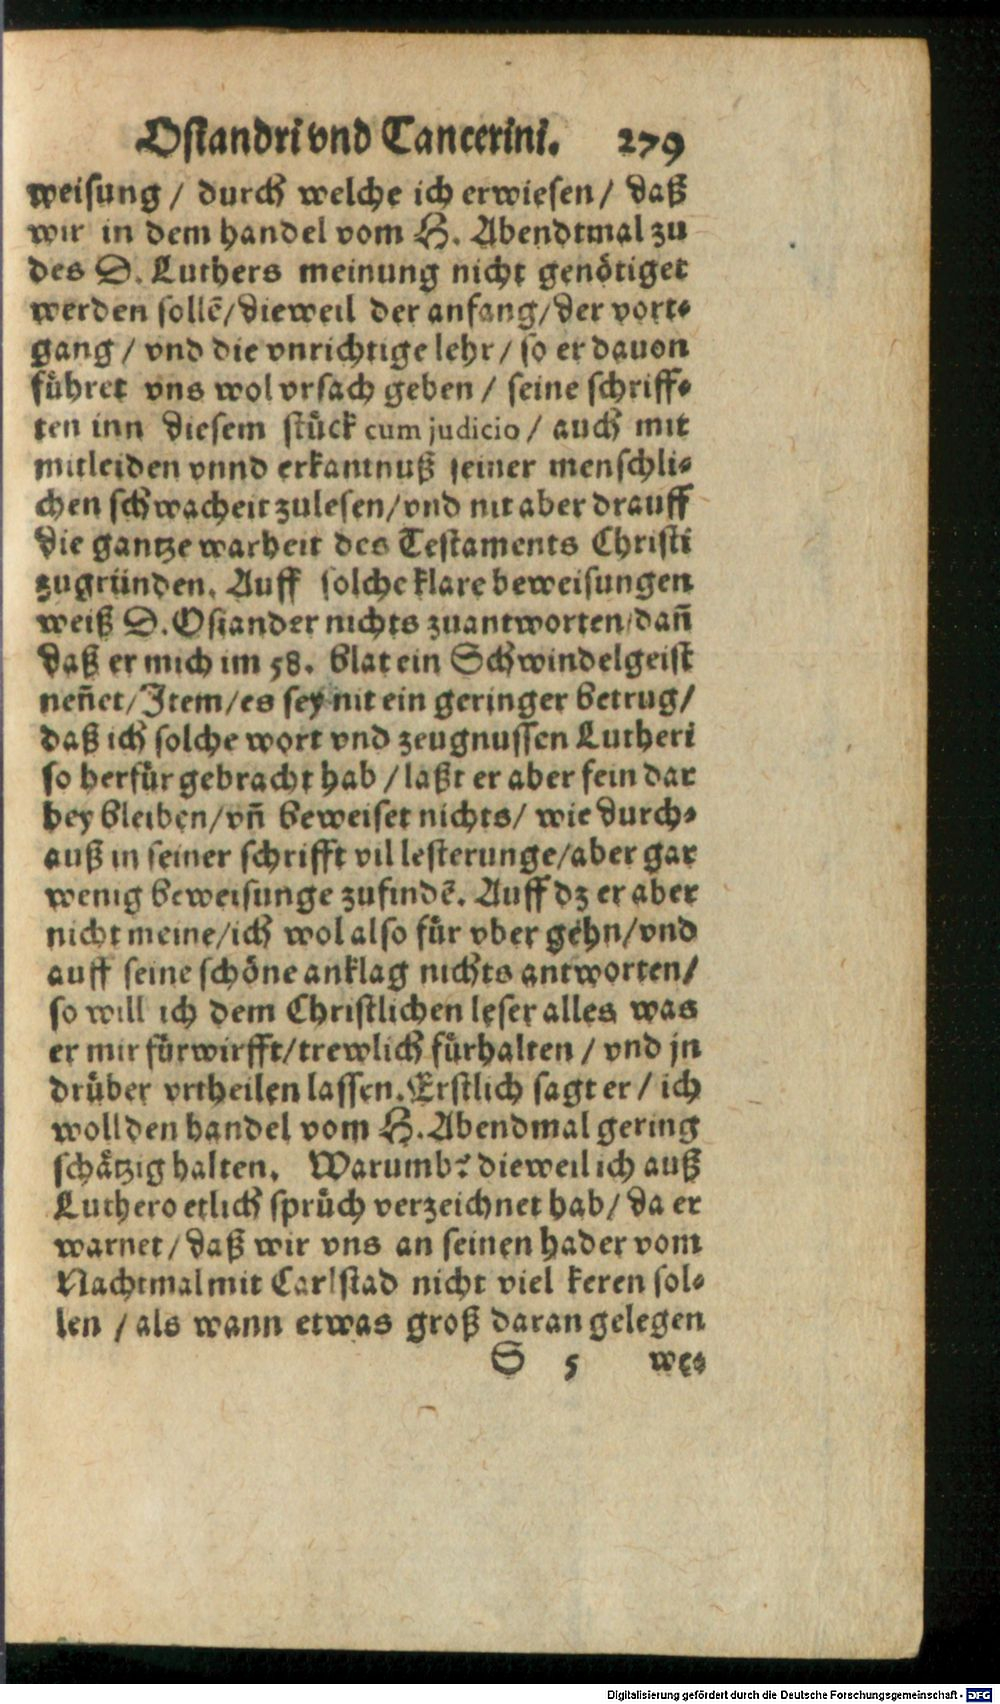 Osiandri vnd Tancerini. 279
weisung / durch welche ich erwiesen / daß
wir in dem handel vom H. Abendtmal zu
des D. Luthers meinung nicht genötiget
werden sollē/dieweil der anfang/der vort⸗
gang / vnd die vnrichtige lehr / so er dauon
führet vns wol vrsach geben / seine schriff⸗
ten inn diesem stück cum judicio / auch mit
mitleiden vnnd erkantnuß seiner menschli⸗
chen schwacheit zulesen/vnd nit aber drauff
die gantze warheit des Testaments Christi
zugründen. Auff solche klare beweisungen
weiß D. Osiander nichts zuantworten/dañ
daß er mich im 58. blat ein Schwindelgeist
neñet/Item/es sey nit ein geringer betrug/
daß ich solche wort vnd zeugnussen Lutheri
so herfür gebracht hab / laßt er aber fein dar
bey bleiben/vñ beweiset nichts/ wie durch⸗
auß in seiner schrifft vil lesterunge/aber gar
wenig beweisunge zufindē. Auff dz er aber
nicht meine/ich wol also für vber gehn/vnd
auff seine schöne anklag nichts antworten/
so will ich dem Christlichen leser alles was
er mir fürwirfft/trewlich fürhalten / vnd jn
drüber vrtheilen lassen. Erstlich sagt er / ich
woll den handel vom H. Abendmal gering
schätzig halten. Warumb? dieweil ich auß
Luthero etlich sprüch verzeichnet hab/ da er
warnet / daß wir vns an seinen hader vom
Nachtmal mit Carlstad nicht viel keren sol⸗
len / als wann etwas groß daran gelegen
S 5 we⸗
Digitalisierung gefördert durch die Deutsche Forschungsgemeinschaft - DFG